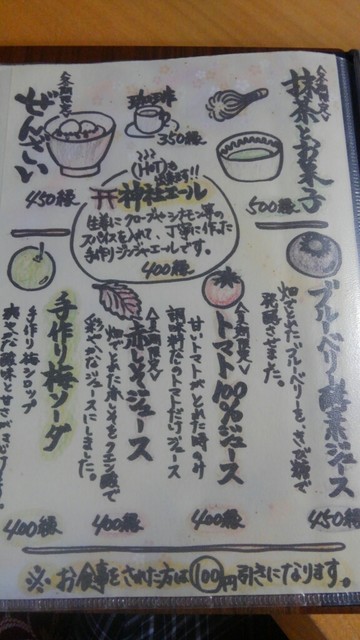 抹茶とお菓子
500縁
珈琲
350縁
ぜんざい
450縁
(Hot)も
出来ます!!
神社エール
生姜にクローブやシナモン等の
スパイスを入れて、丁寧に作った
手作りジンジャーエールです。
400縁
ブルーベリー酵素ジュース
畑でとれたブルーベリーを、きび糖で
発酵させました。
450縁
トマト100%ジュース
甘いトマトがとれた時のみ
調味料なしのトマトだけジュース
400縁
赤しそジュース
畑でとれた赤しそをクエン酸で
彩やかなジュースにしました。
400縁
手作り梅ソーダ
手作り梅シロップ
400縁
※お食事をされた方は100円引きになります。